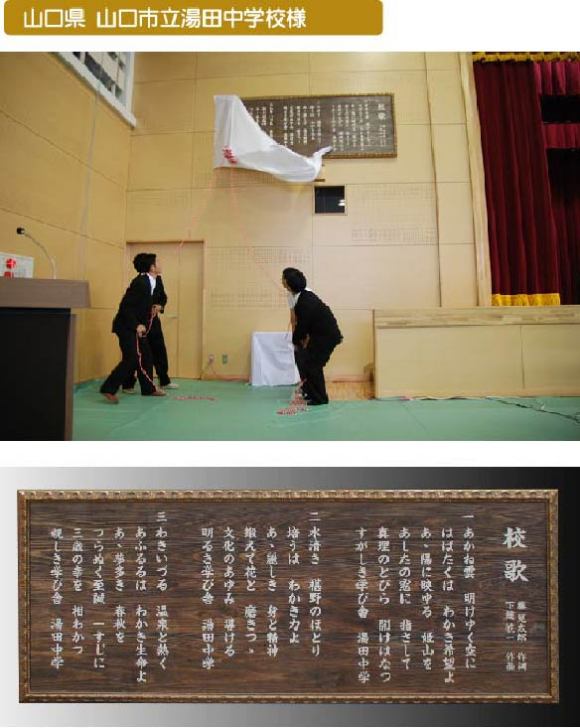 山口県 山口市立湯田中学校様
校歌
作詞
作曲
一 あかね雲 明けゆく空に
はばたくは わかき希望よ
あゝ陽に映ゆる 姫山を
あしたの窓に 指さして
真理のとびら 開けはなつ
すがしき学び舎 湯田中学
二 水清き 椹野のほとり
培うは わかき力よ
あゝ麗しき 身と精神
鍛えて花と 磨きつゝ
文化のあゆみ 導ける
明るき学び舎 湯田中学
三 わきいづる 温泉と熱く
あふるるは わかき生命よ
あゝ夢多き 春秋を
つらぬく至誠 一すじに
三歳の幸を 相わかつ
親しき学び舎 湯田中学